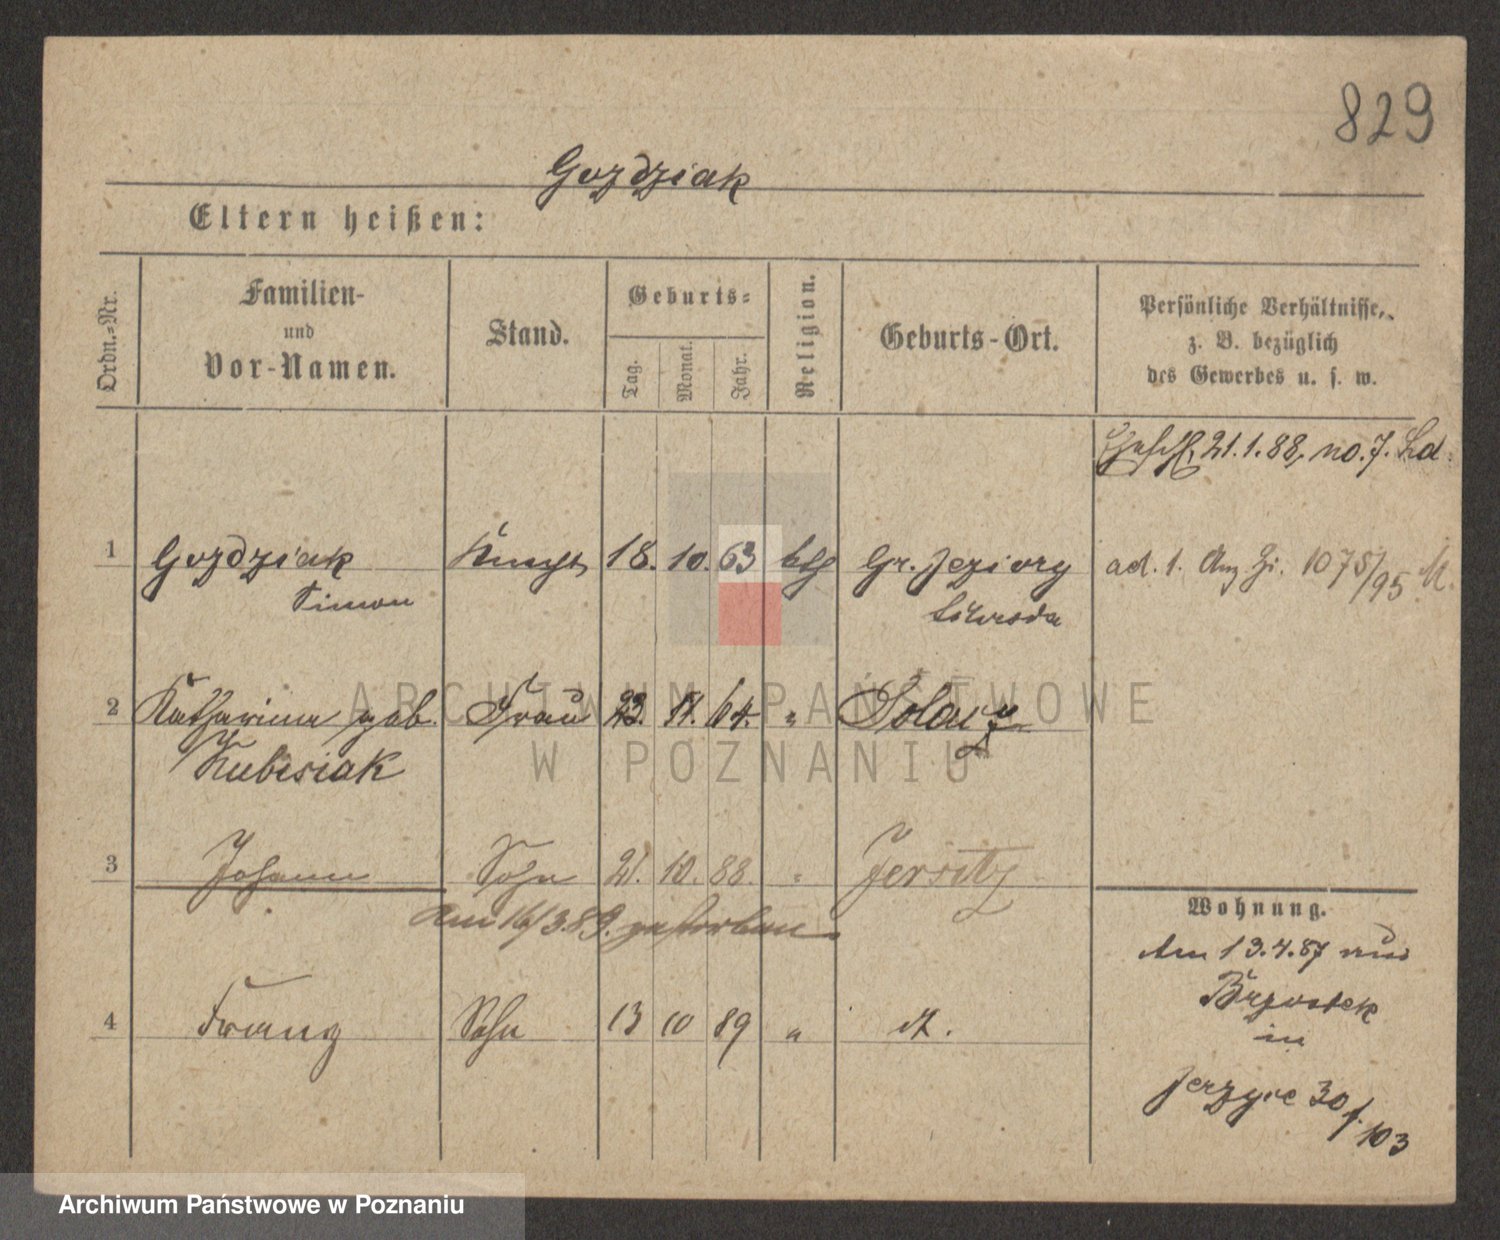 829
Gozdziak
Eltern heißen:
Ordn.=Nr.
Familien-
und
Vor-Namen.
Stand.
Geburts=
Tag.
Monat.
Jahr.
Religion.
Geburts-Ort.
Persönliche Verhältnisse,
z. B. bezüglich
des Gewerbes u. s. w.
21.1.88, no. 7.
1 Gozdziak Knecht 18. 10. 63 kth Gr. Jeziory ad. 1. 1075/95
Simon Schroda
2 Katharina geb. Frau 64. " Solacz
Kubisiak
3 Johann Sohn 21. 10. 88. " Jersitz
Am 16/3.89. gestorben
4 Franz Sohn 13 10 89 "
Wohnung.
Am 13.4.87 aus
Brzostek
in
Jerzyce 30
f. 103
ARCHIWUM PAŃSTWOWE
W POZNANIU
Archiwum Państwowe w Poznaniu